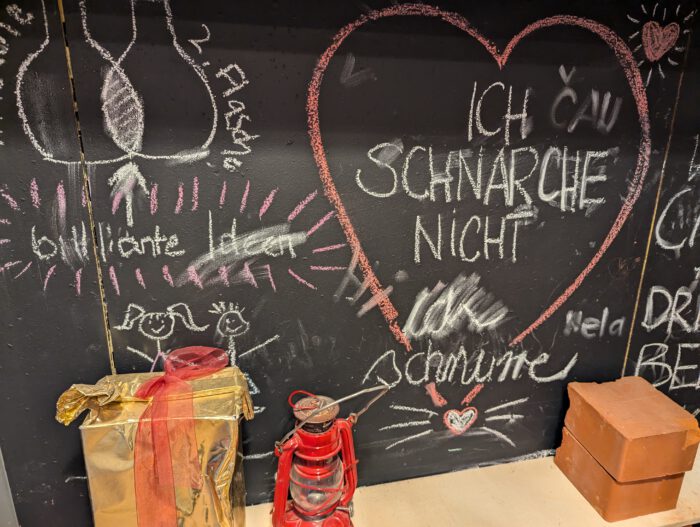 2. Flasche
brilliante Ideen
ICH
ČAU
SCHNARCHE
NICHT
Ich
schnurre
Nela
DR
BE